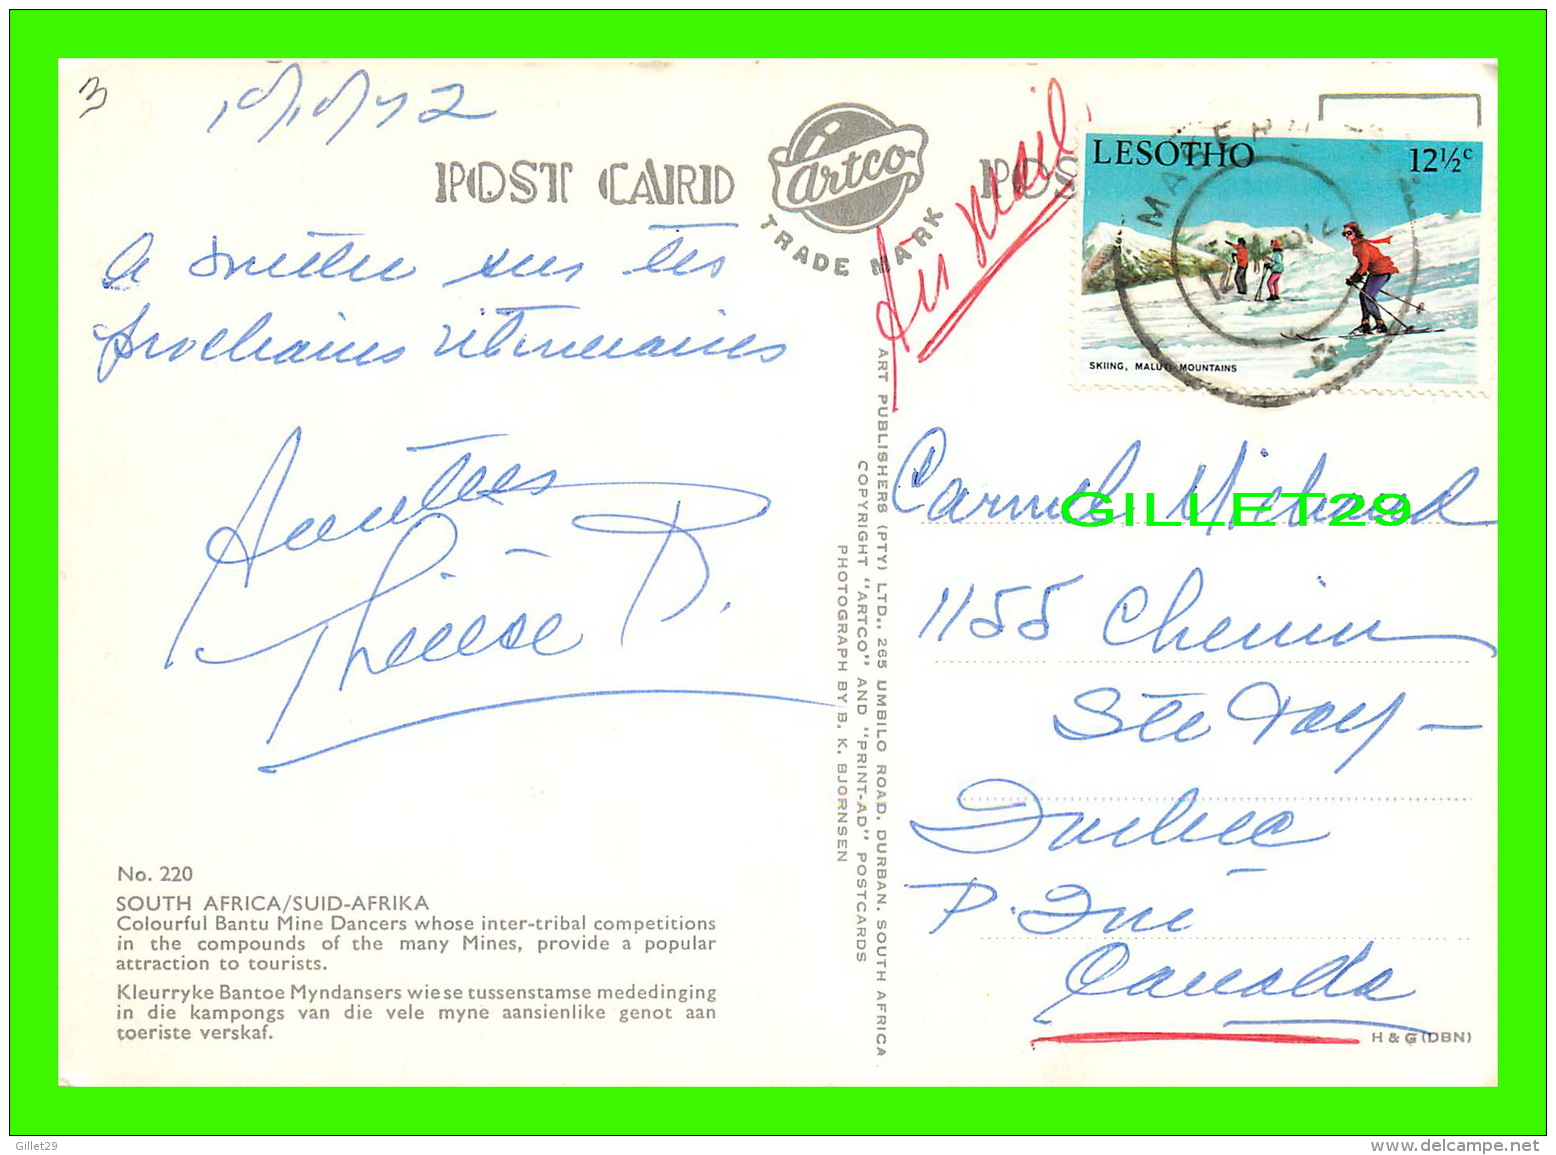 3
10/10/72
POST CARD
artco
TRADE MARK
POS
Air mail,
MASERU
LESOTHO
12½c
SKIING, MALUTI MOUNTAINS
à mettre sur tes
prochains itinéraires
Amitiés
Thérèse P.
No. 220
SOUTH AFRICA/SUID-AFRIKA
Colourful Bantu Mine Dancers whose inter-tribal competitions
in the compounds of the many Mines, provide a popular
attraction to tourists.
Kleurryke Bantoe Myndansers wie se tussenstamse mededinging
in die kampongs van die vele myne aansienlike genot aan
toeriste verskaf.
ART PUBLISHERS (PTY) LTD., 265 UMBILO ROAD, DURBAN. SOUTH AFRICA
COPYRIGHT "ARTCO" AND "PRINT-AD" POSTCARDS
PHOTOGRAPH BY B. K. BJORNSEN
Carmel Michaud
GILLET29
1155 Chemin
Ste Foy -
Québec
P. Qué
Canada
H & G (DBN)
Gillet29
www.delcampe.net